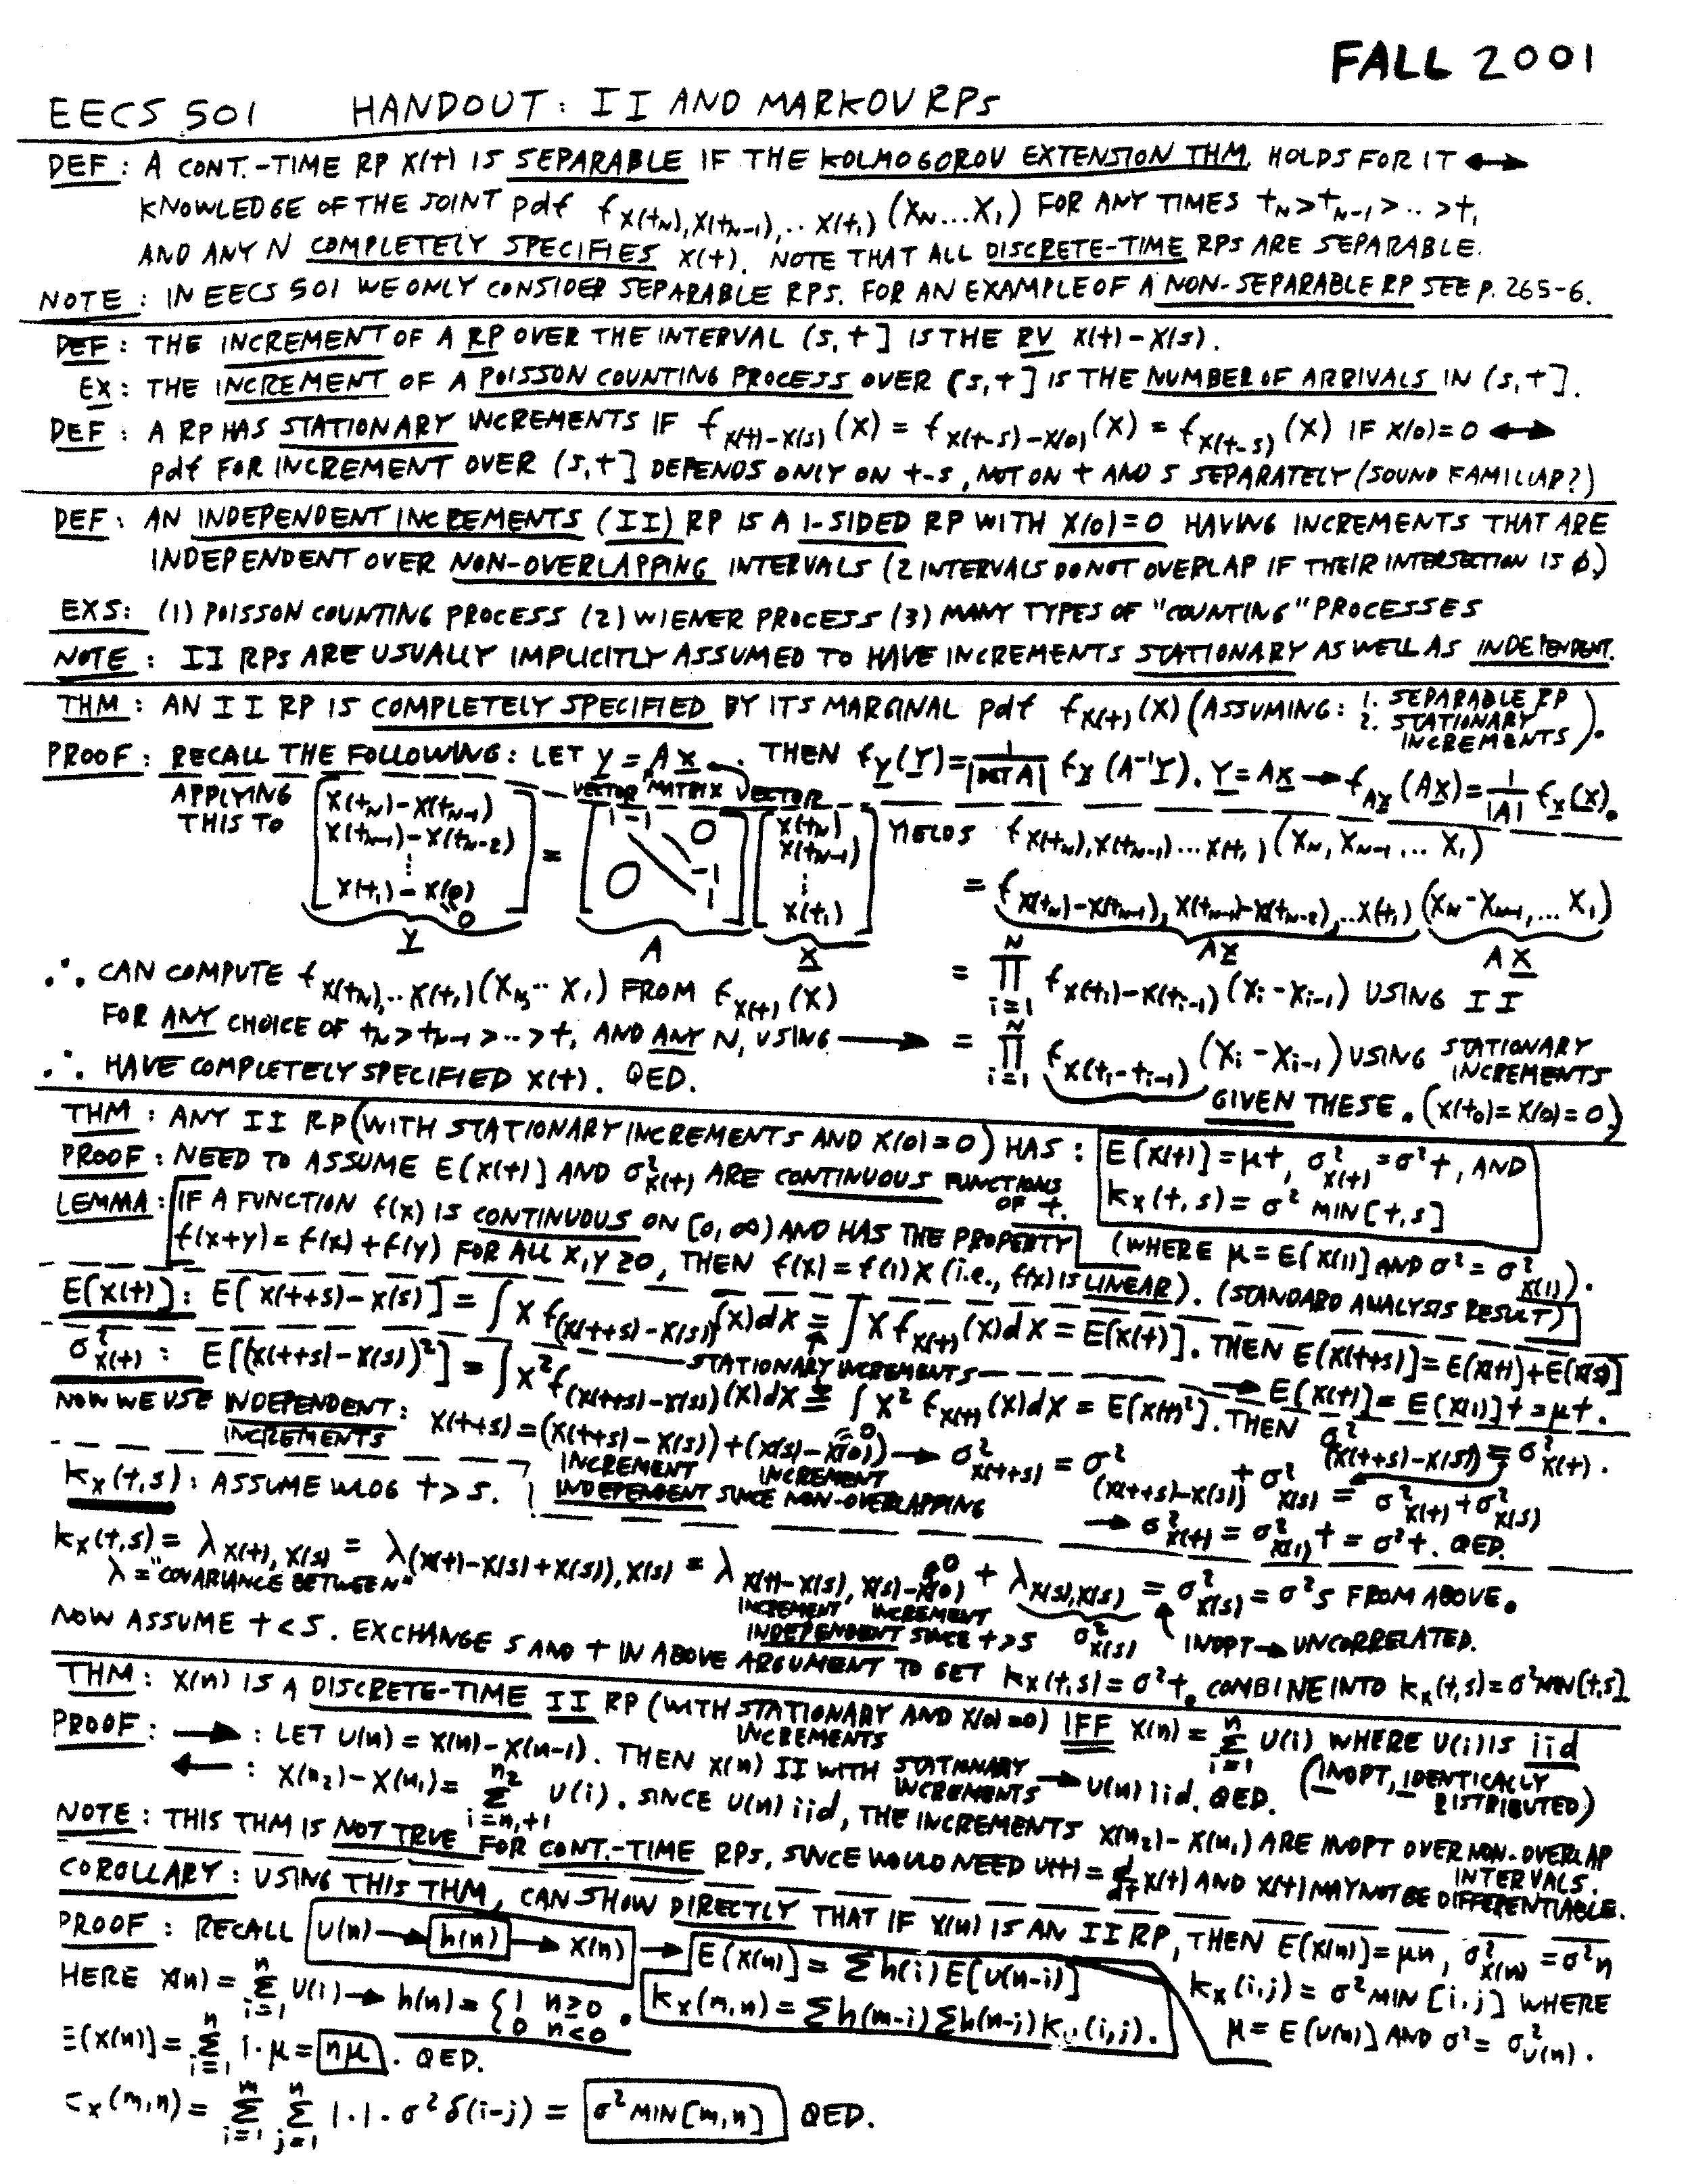 FALL 2001
EECS 501 HANDOUT: II AND MARKOV RPs
DEF: A CONT.-TIME RP X(t) IS SEPARABLE IF THE KOLMOGOROV EXTENSION THM. HOLDS FOR IT ↔
KNOWLEDGE OF THE JOINT pdf f_{X(t_N),X(t_{N-1}),..X(t_1)}(X_N...X_1) FOR ANY TIMES t_N>t_{N-1}>..>t_1
AND ANY N COMPLETELY SPECIFIES X(t). NOTE THAT ALL DISCRETE-TIME RPs ARE SEPARABLE.
NOTE: IN EECS 501 WE ONLY CONSIDER SEPARABLE RPs. FOR AN EXAMPLE OF A NON-SEPARABLE RP SEE p. 265-6.
DEF: THE INCREMENT OF A RP OVER THE INTERVAL (s,t] IS THE RV X(t)-X(s).
EX: THE INCREMENT OF A POISSON COUNTING PROCESS OVER (s,t] IS THE NUMBER OF ARRIVALS IN (s,t].
DEF: A RP HAS STATIONARY INCREMENTS IF f_{X(t)-X(s)}(X) = f_{X(t-s)-X(0)}(X) = f_{X(t-s)}(X) IF X(0)=0 ↔
pdf FOR INCREMENT OVER (s,t] DEPENDS ONLY ON t-s, NOT ON t AND s SEPARATELY (SOUND FAMILIAR?)
DEF: AN INDEPENDENT INCREMENTS (II) RP IS A 1-SIDED RP WITH X(0)=0 HAVING INCREMENTS THAT ARE
INDEPENDENT OVER NON-OVERLAPPING INTERVALS (2 INTERVALS DO NOT OVERLAP IF THEIR INTERSECTION IS ∅.)
EXS: (1) POISSON COUNTING PROCESS (2) WIENER PROCESS (3) MANY TYPES OF "COUNTING" PROCESSES
NOTE: II RPs ARE USUALLY IMPLICITLY ASSUMED TO HAVE INCREMENTS STATIONARY AS WELL AS INDEPENDENT.
THM: AN II RP IS COMPLETELY SPECIFIED BY ITS MARGINAL pdf f_{X(t)}(X) (ASSUMING: 1. SEPARABLE RP
2. STATIONARY INCREMENTS).
PROOF: RECALL THE FOLLOWING: LET y = Ax. THEN f_y(Y) = 1/|DET A| f_x(A⁻¹Y). Y=AX → f_{Ax}(AX) = 1/|A| f_x(X).
VECTOR MATRIX VECTOR
APPLYING THIS TO [X(t_N)-X(t_{N-1}) X(t_{N-1})-X(t_{N-2}) ⋮ X(t_1)-X(0)] = [1 -1 0 0 -1 1] [X(t_N) X(t_{N-1}) ⋮ X(t_1)] YIELDS f_{X(t_N),X(t_{N-1})...X(t_1)}(X_N, X_{N-1}... X_1)
0
= f_{X(t_N)-X(t_{N-1}),X(t_{N-1})-X(t_{N-2}),..X(t_1)}(X_N-X_{N-1},... X_1)
Y A X AX AX
∴ CAN COMPUTE f_{X(t_N),..X(t_1)}(X_N,.. X_1) FROM f_{X(t)}(X) = ∏_{i=1}^{N} f_{X(t_i)-X(t_{i-1})}(X_i-X_{i-1}) USING II
FOR ANY CHOICE OF t_N>t_{N-1}>..>t_1 AND ANY N, USING → = ∏_{i=1}^{N} f_{X(t_i-t_{i-1})}(X_i-X_{i-1}) USING STATIONARY INCREMENTS
∴ HAVE COMPLETELY SPECIFIED X(t). QED.
GIVEN THESE. (X(t_0)=X(0)=0.)
THM: ANY II RP (WITH STATIONARY INCREMENTS AND X(0)=0) HAS: E[X(t)]=μt, σ²_{X(t)}=σ²t, AND
K_X(t,s) = σ² MIN[t,s]
PROOF: NEED TO ASSUME E[X(t)] AND σ²_{X(t)} ARE CONTINUOUS FUNCTIONS OF t.
LEMMA: IF A FUNCTION f(x) IS CONTINUOUS ON [0,∞) AND HAS THE PROPERTY (WHERE μ=E[X(1)] AND σ²=σ²_{X(1)}).
f(x+y) = f(x)+f(y) FOR ALL X,Y ≥0, THEN f(x) = f(1)X (i.e., f(x) IS LINEAR). (STANDARD ANALYSIS RESULT)
E[X(t)]: E[X(t+s)-X(s)] = ∫X f_{(X(t+s)-X(s))}(X)dX = ∫X f_{X(t)}(X)dX = E[X(t)]. THEN E[X(t+s)] = E[X(t)]+E[X(s)]
STATIONARY INCREMENTS → E[X(t)] = E[X(1)]t = μt.
σ²_{X(t)}: E[(X(t+s)-X(s))²] = ∫X² f_{(X(t+s)-X(s))}(X)dX = ∫X² f_{X(t)}(X)dX = E[X(t)²]. THEN σ²_{(X(t+s)-X(s))} = σ²_{X(t)}.
NOW WE USE INDEPENDENT INCREMENTS: X(t+s) = (X(t+s)-X(s))+(X(s)-X(0)) → σ²_{X(t+s)} = σ²_{(X(t+s)-X(s))} + σ²_{X(s)} = σ²_{X(t)}+σ²_{X(s)}
=0
INCREMENT INCREMENT
INDEPENDENT SINCE NON-OVERLAPPING
→ σ²_{X(t)} = σ²_{X(1)}t = σ²t. QED.
K_X(t,s): ASSUME WLOG t>s.
K_X(t,s) = λ_{X(t),X(s)} = λ_{(X(t)-X(s)+X(s)),X(s)} = λ_{X(t)-X(s),X(s)-X(0)} + λ_{X(s),X(s)} = σ²_{X(s)} = σ²s FROM ABOVE.
λ = "COVARIANCE BETWEEN"
0
INCREMENT INCREMENT
INDEPENDENT SINCE t>s σ²_{X(s)} INDPT → UNCORRELATED.
NOW ASSUME t<s. EXCHANGE s AND t IN ABOVE ARGUMENT TO GET K_X(t,s)=σ²t. COMBINE INTO K_X(t,s)=σ² MIN[t,s]
THM: X(n) IS A DISCRETE-TIME II RP (WITH STATIONARY INCREMENTS AND X(0)=0) IFF X(n) = Σ_{i=1}^{n} U(i) WHERE U(i) IS iid
(INDPT, IDENTICALLY DISTRIBUTED)
PROOF: →: LET U(n) = X(n)-X(n-1). THEN X(n) II WITH STATIONARY INCREMENTS → U(n) iid. QED.
←: X(n_2)-X(n_1) = Σ_{i=n_1+1}^{n_2} U(i). SINCE U(n) iid, THE INCREMENTS X(n_2)-X(n_1) ARE INDPT OVER NON-OVERLAP INTERVALS.
NOTE: THIS THM IS NOT TRUE FOR CONT.-TIME RPs, SINCE WOULD NEED U(t) = d/dt X(t) AND X(t) MAY NOT BE DIFFERENTIABLE.
COROLLARY: USING THIS THM, CAN SHOW DIRECTLY THAT IF X(n) IS AN II RP, THEN E[X(n)]=μn, σ²_{X(n)}=σ²n
K_X(i,j) = σ² MIN[i,j] WHERE
μ = E[U(n)] AND σ² = σ²_{U(n)}.
PROOF: RECALL U(n) → h(n) → X(n) → E[X(n)] = Σh(i)E[U(n-i)]
K_X(m,n) = Σh(m-i)Σh(n-j)K_U(i,j).
HERE X(n) = Σ_{i=1}^{n} U(i) → h(n) = {1 n≥0 0 n<0.
E[X(n)] = Σ_{i=1}^{n} 1·μ = nμ. QED.
K_X(m,n) = Σ_{i=1}^{m} Σ_{j=1}^{n} 1·1·σ²δ(i-j) = σ² MIN[m,n] QED.